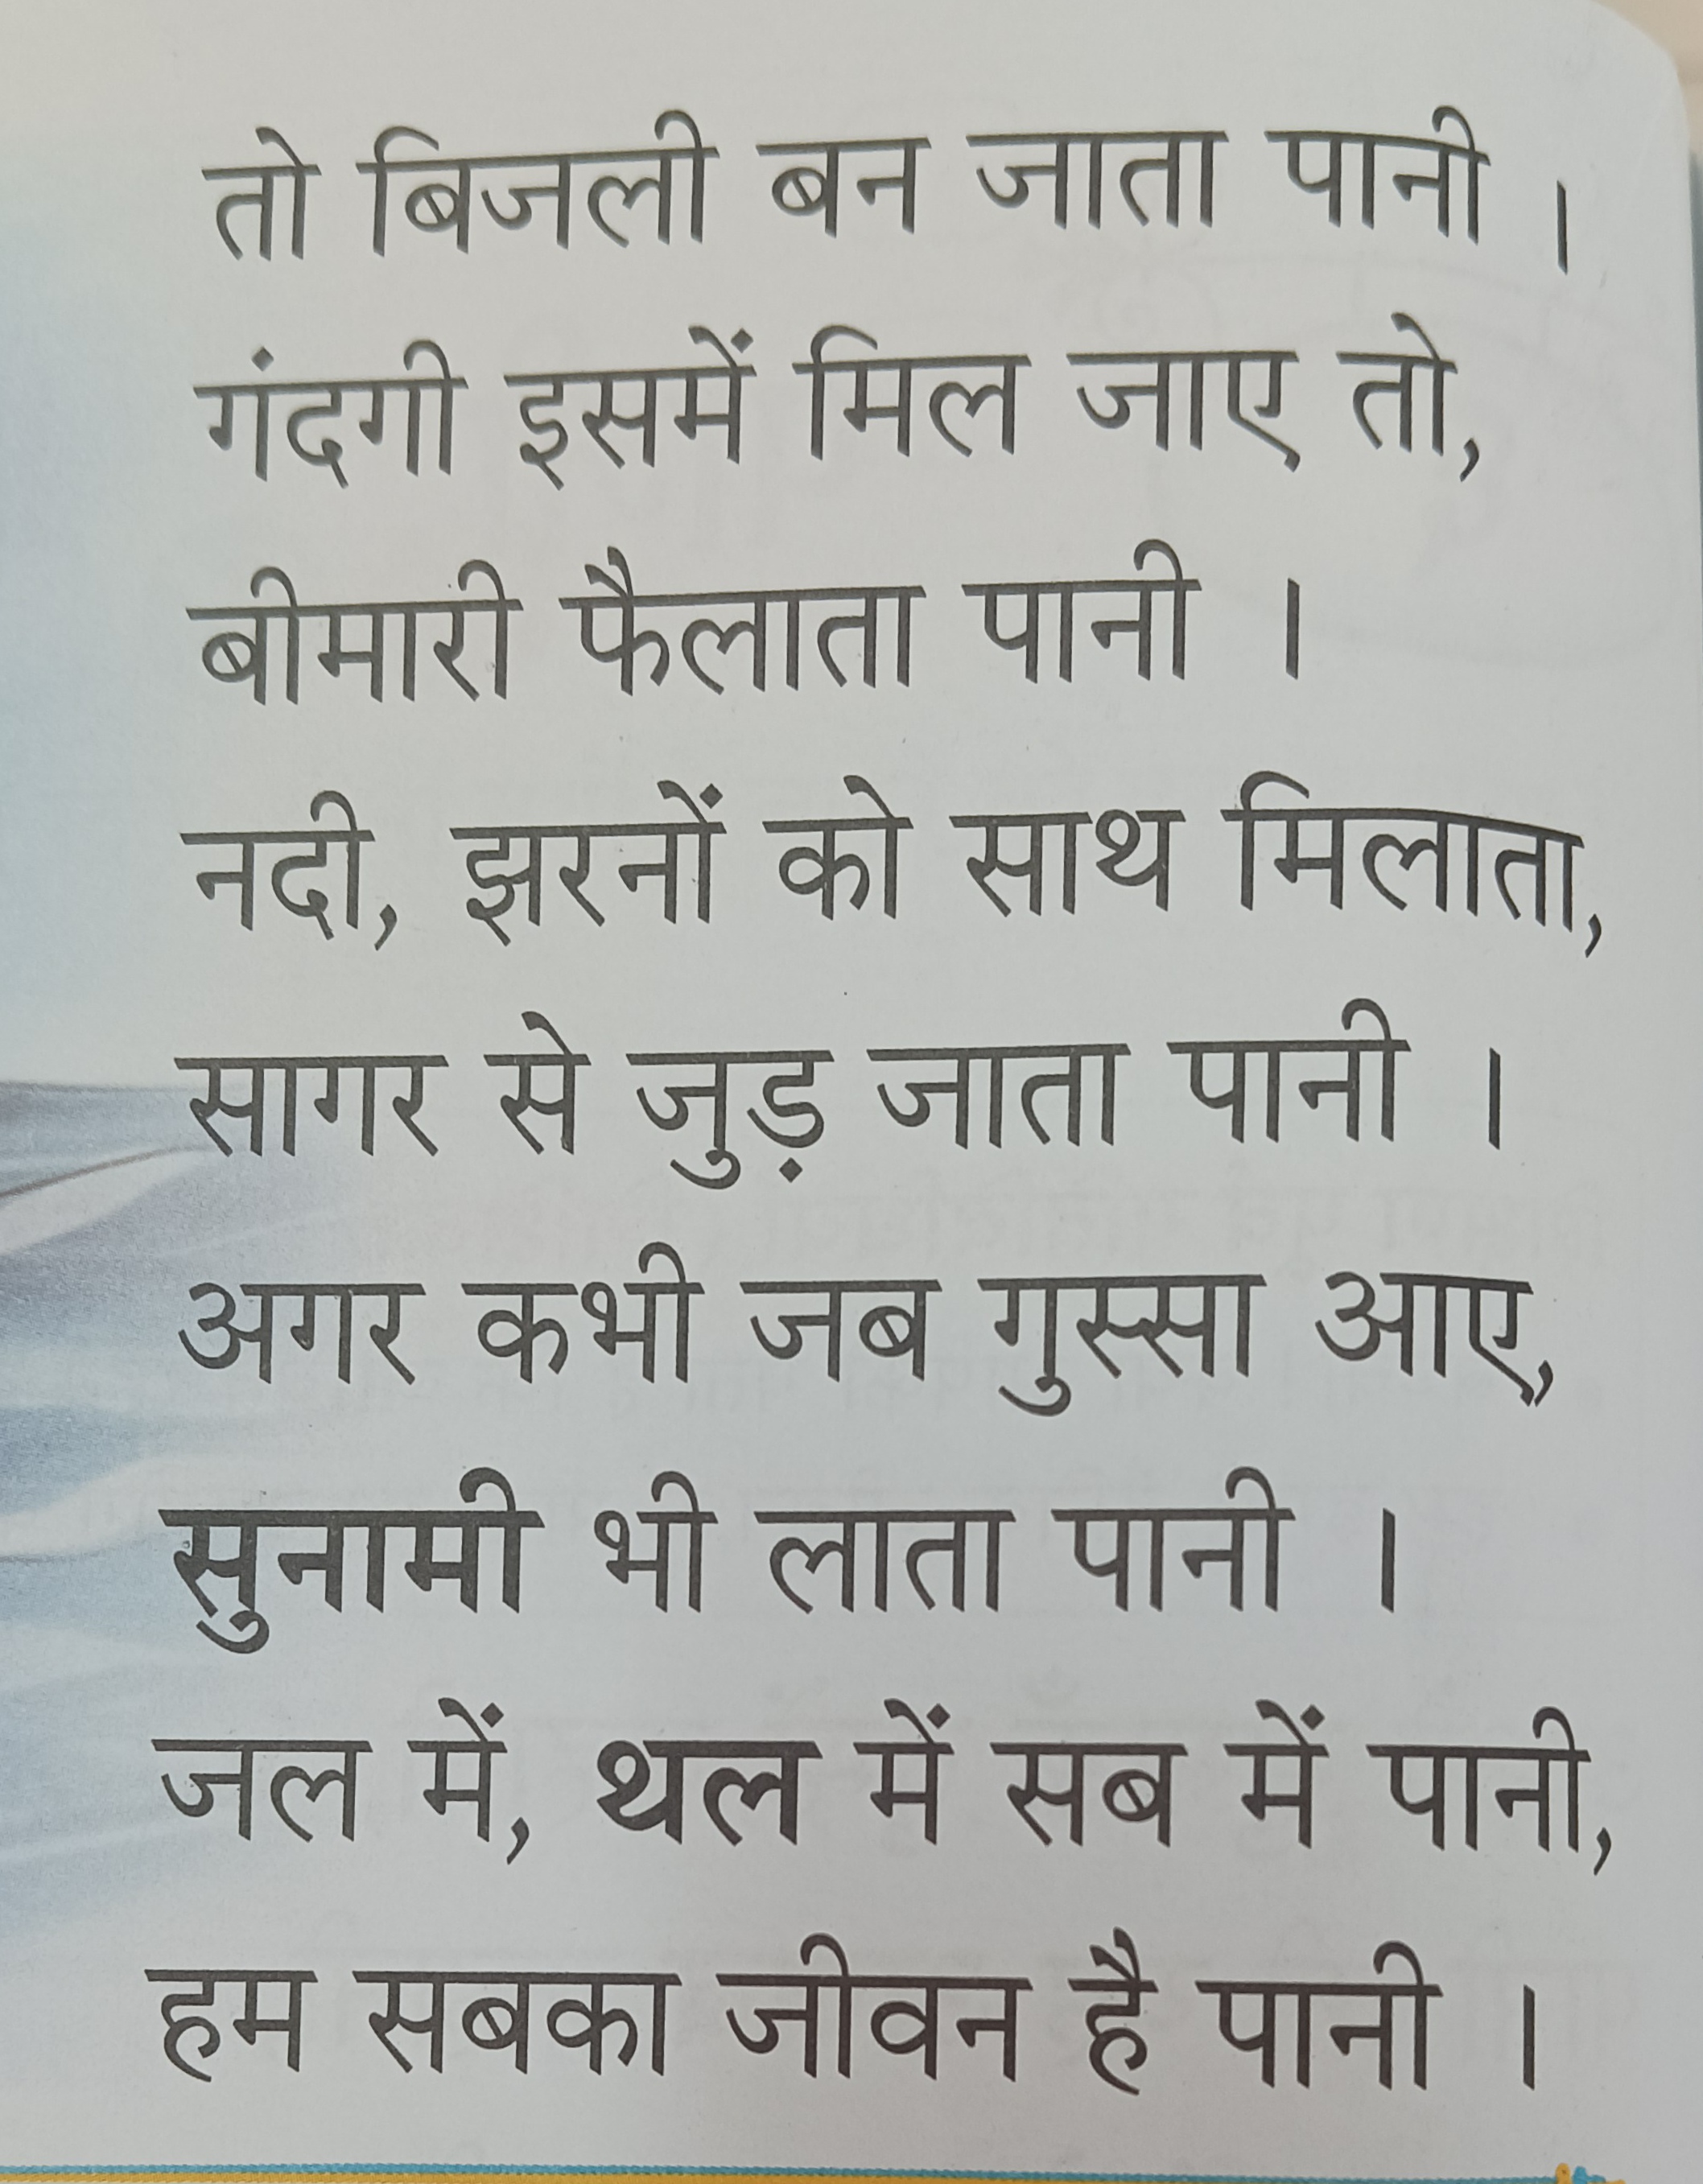 तो बिजली बन जाता पानी ।
गंदगी इसमें मिल जाए तो,
बीमारी फैलाता पानी ।
नदी, झरनों को साथ मिलाता,
सागर से जुड़ जाता पानी ।
अगर कभी जब गुस्सा आए,
सुनामी भी लाता पानी ।
जल में, थल में सब में पानी,
हम सबका जीवन है पानी ।